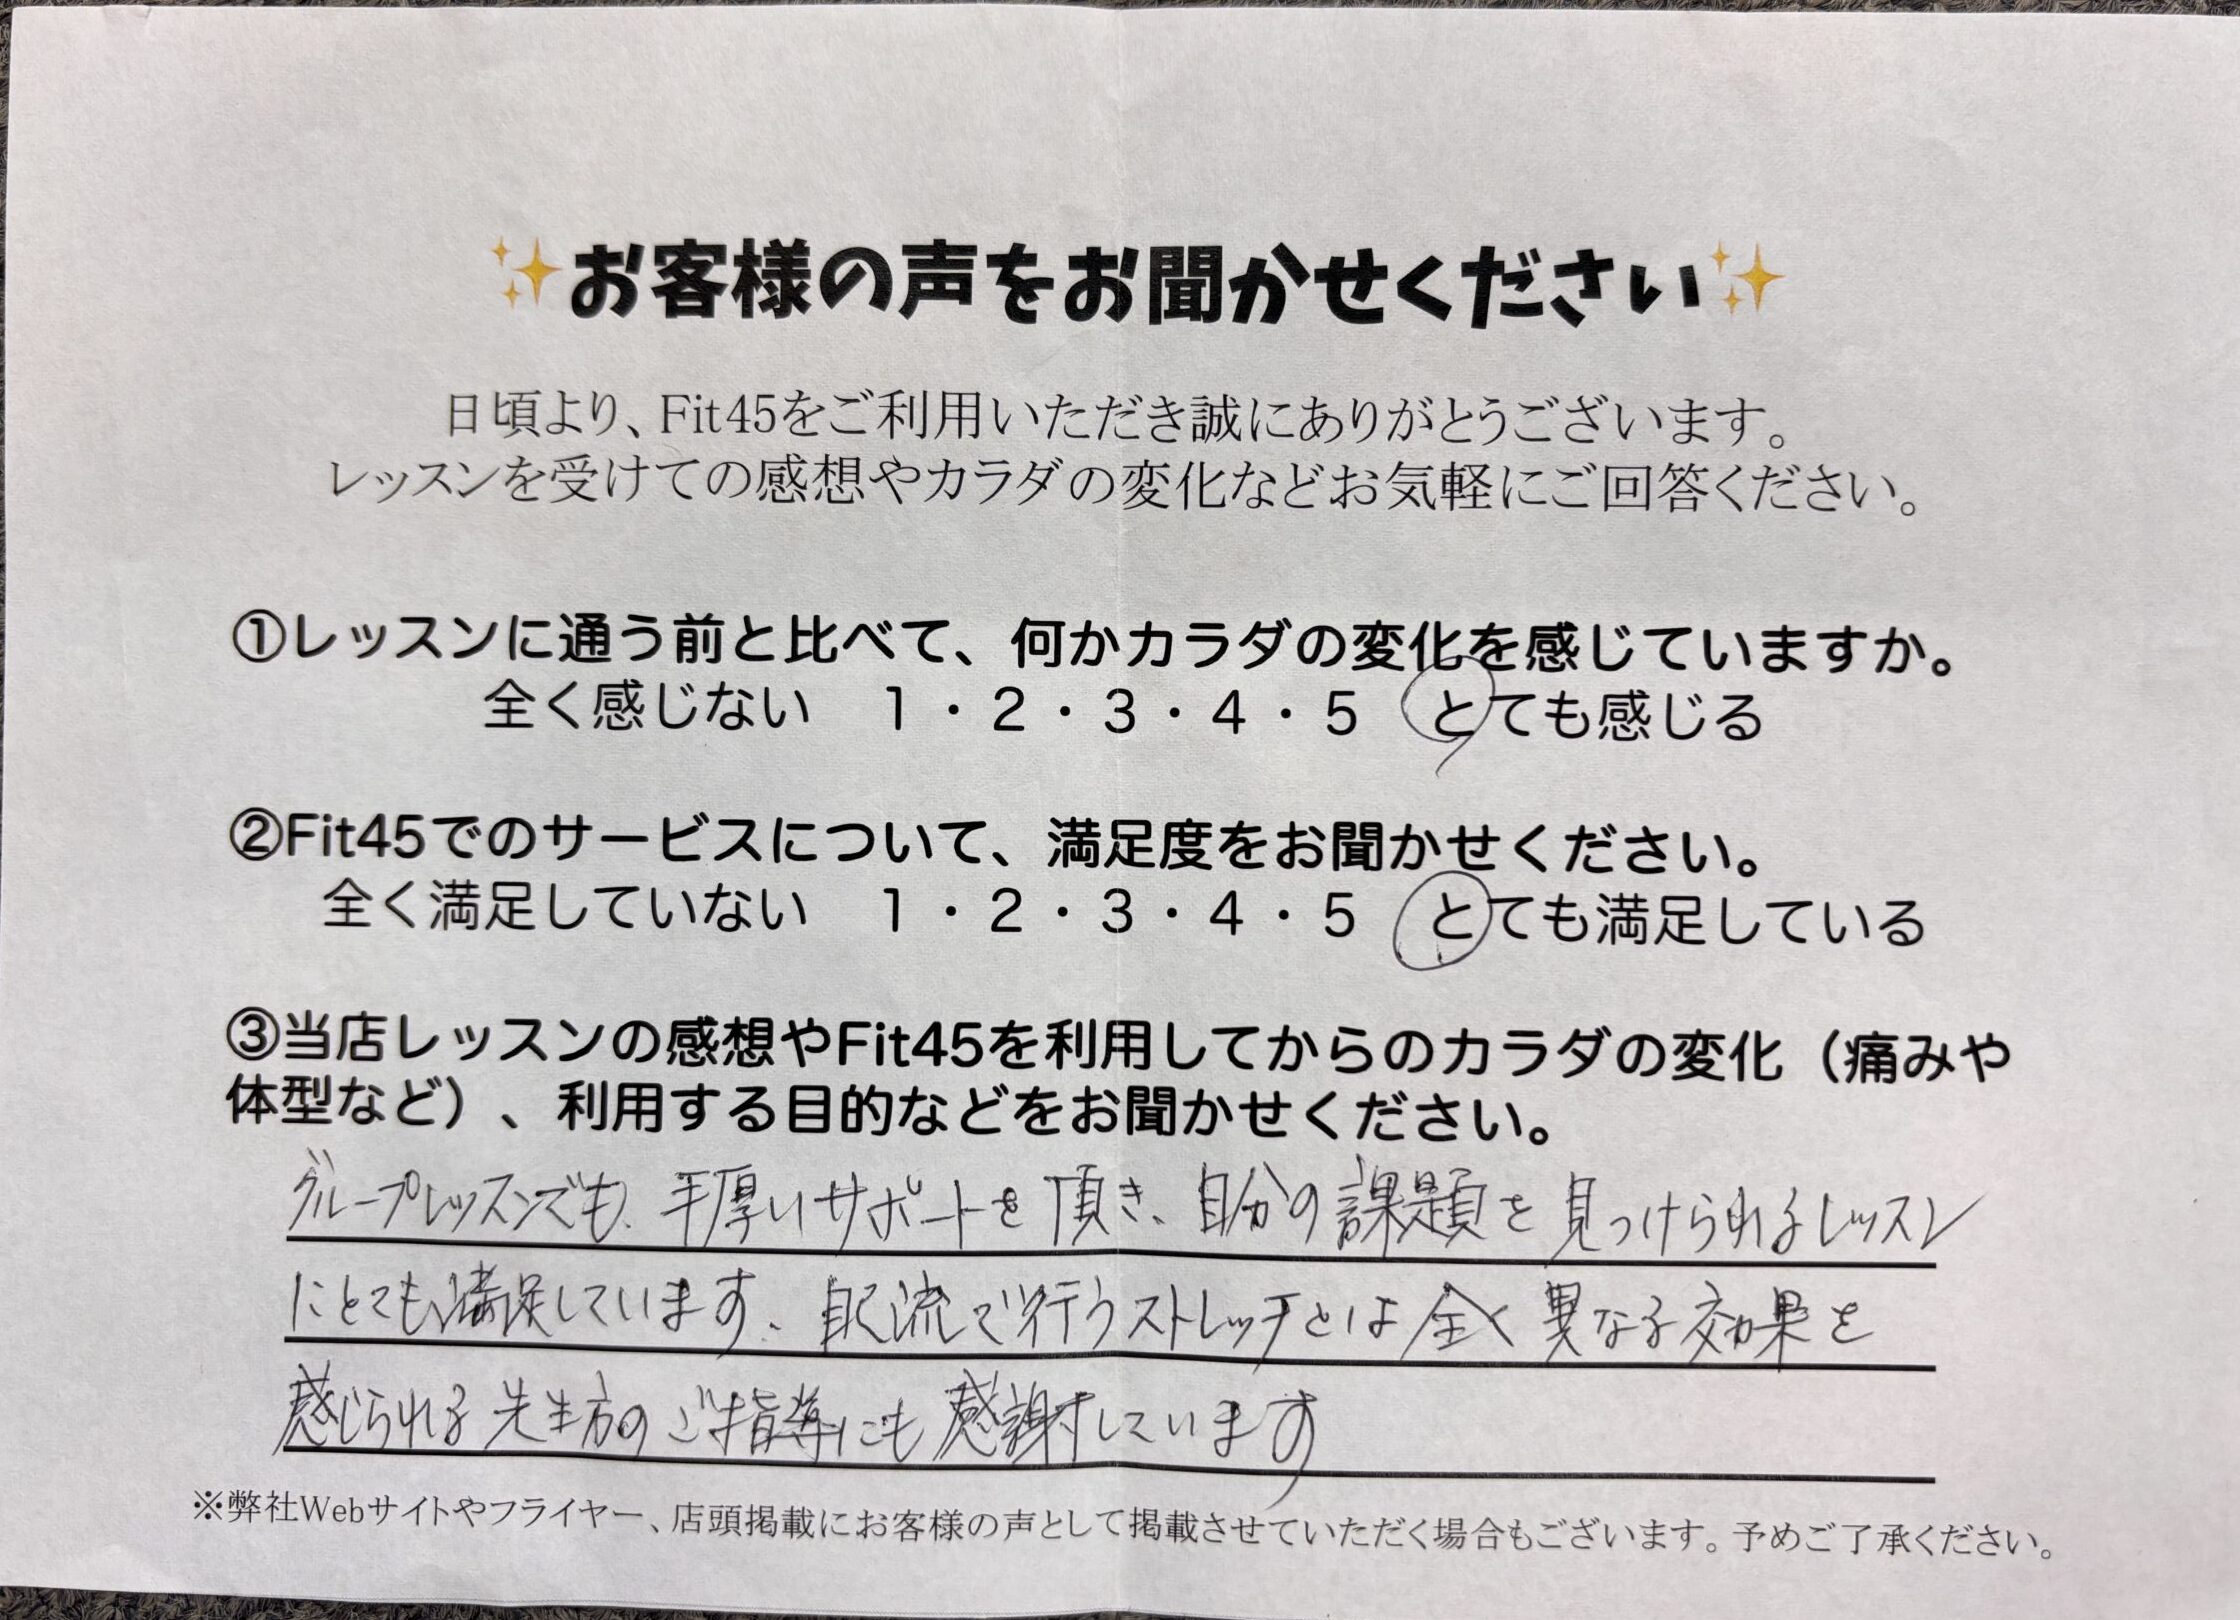 ✨お客様の声をお聞かせください✨
日頃より、Fit45をご利用いただき誠にありがとうございます。
レッスンを受けての感想やカラダの変化などお気軽にご回答ください。
①レッスンに通う前と比べて、何かカラダの変化を感じていますか。
全く感じない 1・2・3・4・5 とても感じる
②Fit45でのサービスについて、満足度をお聞かせください。
全く満足していない 1・2・3・4・5 とても満足している
③当店レッスンの感想やFit45を利用してからのカラダの変化（痛みや
体型など）、利用する目的などをお聞かせください。
グループレッスンでも、手厚いサポートを頂き、自分の課題を見つけられるレッスン
にとても満足しています、自己流で行うストレッチとは全く異なる効果を
感じられる先生方のご指導にも感謝しています
※弊社Webサイトやフライヤー、店頭掲載にお客様の声として掲載させていただく場合もございます。予めご了承ください。